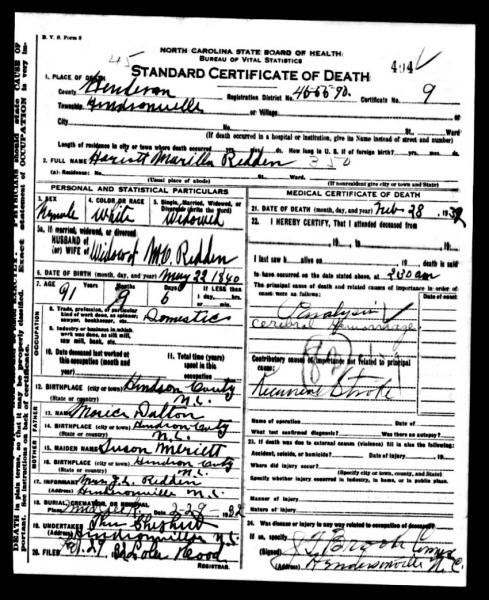 B. V. S. Form 8
45
NORTH CAROLINA STATE BOARD OF HEALTH
BUREAU OF VITAL STATISTICS
STANDARD CERTIFICATE OF DEATH
1. PLACE OF DEATH
County Henderson Registration District No. 45-55 90. Certificate No. 9
Township Hendersonville or Village
City No. St. Ward
(If death occurred in a hospital or institution, give its Name instead of street and number)
Length of residence in city or town where death occurred yrs. mos. ds. How long in U. S. if of foreign birth? yrs. mos. ds.
2. FULL NAME Hariett Marilla Redden 350
(a) Residence: No. St. Ward
(Usual place of abode) (If nonresident give city or town and State)
PERSONAL AND STATISTICAL PARTICULARS
3. SEX Female
4. COLOR OR RACE White
5. Single, Married, Widowed, or Divorced (write the word) Widowed
5a. If married, widowed, or divorced
HUSBAND of
(or) WIFE of Widow of Redden
6. DATE OF BIRTH (month, day, and year) May 22 1840
7. AGE 91 9 Days 6 If LESS than
1 day, hrs.
or min.
OCCUPATION
8. Trade, profession, or particular kind of work done, as spinner, sawyer, bookkeeper, etc. Domestic
9. Industry or business in which work was done, as silk mill, saw mill, bank, etc.
10. Date deceased last worked at this occupation (month and year)
11. Total time (years) spent in this occupation
12. BIRTHPLACE (city or town) Hendson County
(State or country) N.C.
FATHER
13. NAME Dalton
14. BIRTHPLACE (city or town)
(State or country) N.C.
MOTHER
15. MAIDEN NAME Susan Meriett
16. BIRTHPLACE (city or town)
(State or country) N.C.
17. INFORMANT Mrs. J.L. Redden
(Address) Hendersonville N.C.
18. BURIAL, CREMATION, OR REMOVAL
Place Date 2-29-1932
19. UNDERTAKER
(Address) Hendersonville N.C.
20. FILED
REGISTRAR.
MEDICAL CERTIFICATE OF DEATH
21. DATE OF DEATH (month, day, and year) Feb 28, 1932
22. I HEREBY CERTIFY, That I attended deceased
from , 19 , to , 19
I last saw h alive on , 19 , death is said
to have occurred on the date stated above, at 2:30 a m.
The principal cause of death and related causes of importance in order of onset were as follows:
Paralysis
Cerebral Hemorrhage
Contributory causes of importance not related to principal cause:
Recurring Stroke
Name of operation Date of
What test confirmed diagnosis? Was there an autopsy?
23. If death was due to external causes (violence) fill in also the following:
Accident, suicide, or homicide? Date of injury , 19
Where did injury occur?
(Specify city or town, county, and State)
Specify whether injury occurred in industry, in home, or in public place.
Manner of injury
Nature of injury
24. Was disease or injury in any way related to occupation of deceased?
If so, specify
(Signed)
(Address) Hendersonville N.C.